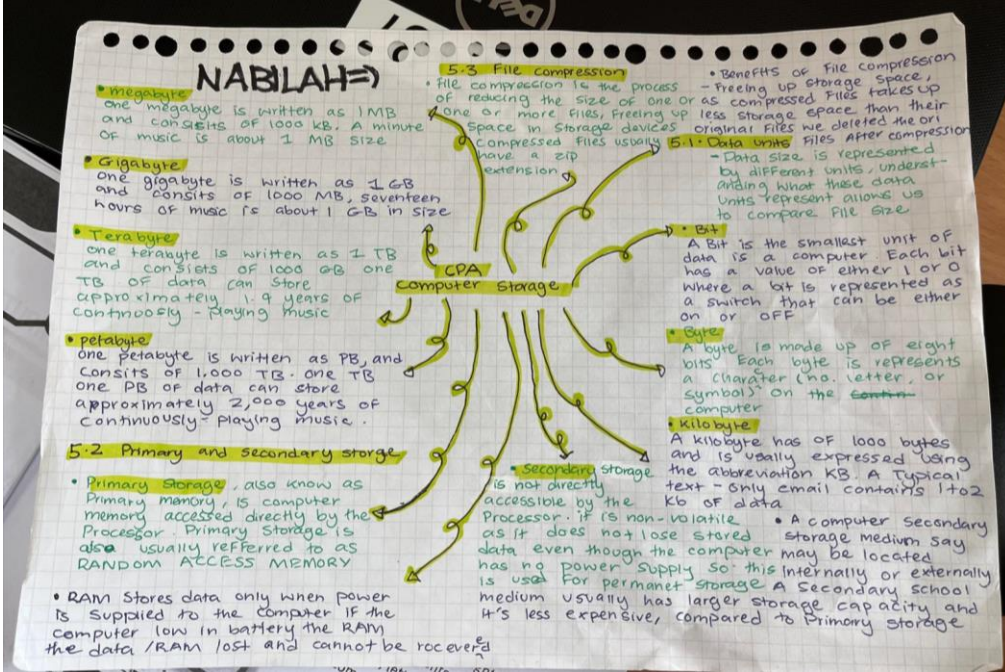 DELL
NABILAH=>
• megabyte
one megabyte is written as 1MB
and consists of 1000 kB. A minute
of music is about 1 MB size
• Gigabyte
one gigabyte is written as 1 GB
and consits of 1000 MB, seventeen
hours of music is about 1 GB in size
• Terabyte
one terabyte is written as 1 TB
and consists of 1000 GB one
TB of data can store
approximately 1.9 years of
continuosly - playing music
• petabyte
one petabyte is written as PB, and
consits of 1,000 TB. one TB
one PB of data can store
approximately 2,000 years of
continuously - playing music.
5.2 Primary and secondary storge
• Primary Storage, also know as
Primary memory, is computer
memory accessed directly by the
Processor. Primary Storage is
also usually refferred to as
RANDOM ACCESS MEMORY
• RAM Stores data only when power
is supplied to the computer IF the
computer low in battery the RAM
the data /RAM lost and cannot be rocevered
5.3 File compression
• File compression is the process
of reducing the size of one or
one or more files, freeing up
Space in Storage devices
Compressed files usually
have a zip
extension
CPA
Computer Storage
• Benefits of File compression
- Freeing up storage Space,
as compressed Files takes up
less storage space than their
original Files we deleted the ori
Files After compression
5.1 • Data units
- Data size is represented
by different units, underst-
anding what these data
units represent allows us
to compare File size
• Bit
A Bit is the smallest unit of
data is a computer Each bit
has a value of either 1 or 0
where a bit is represented as
a switch that can be either
on or OFF
• Byte
A byte is made up of eight
bits Each byte is represents
a charater (no. letter, or
symbols) on the
computer
• Kilobyte
A kilobyte has of 1000 bytes
and is usally expressed using
the abbreviation KB. A Typical
text - only email contains 1 to 2
kb of data
• Secondary storage
is not directly
accessible by the
Processor. it is non-volatile
as it does not lose stared
data even though the computer
has no power supply so this
is used For permanet storage
• A computer secondary
storage medium say
may be located
internally or externally
A secondary school
medium usually has larger storage capacity and
it's less expensive, compared to Primary storage